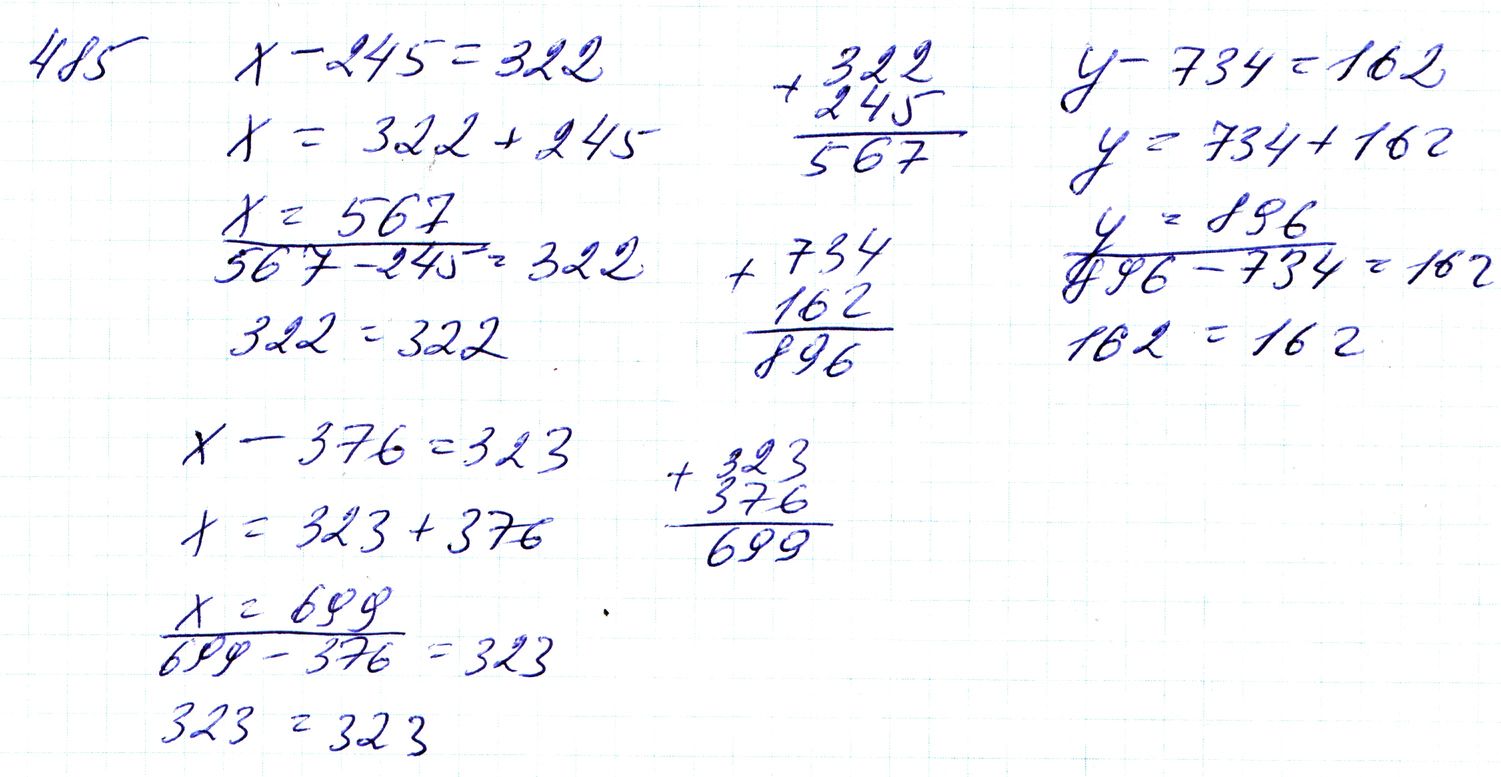 485
x - 245 = 322
x = 322 + 245
x = 567
567 - 245 = 322
322 = 322
+ 322
245
567
+ 734
162
896
y - 734 = 162
y = 734 + 162
y = 896
896 - 734 = 162
162 = 162
x - 376 = 323
x = 323 + 376
x = 699
699 - 376 = 323
323 = 323
+ 323
376
699